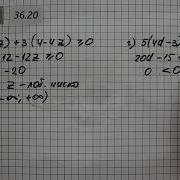 36.20
z) + 3(4-4z) ≥ 0
12 - 12z ≥ 0
-20
z - люб. число
-∞; +∞)
г) 5(4d-3
20d - 15
0 < 0